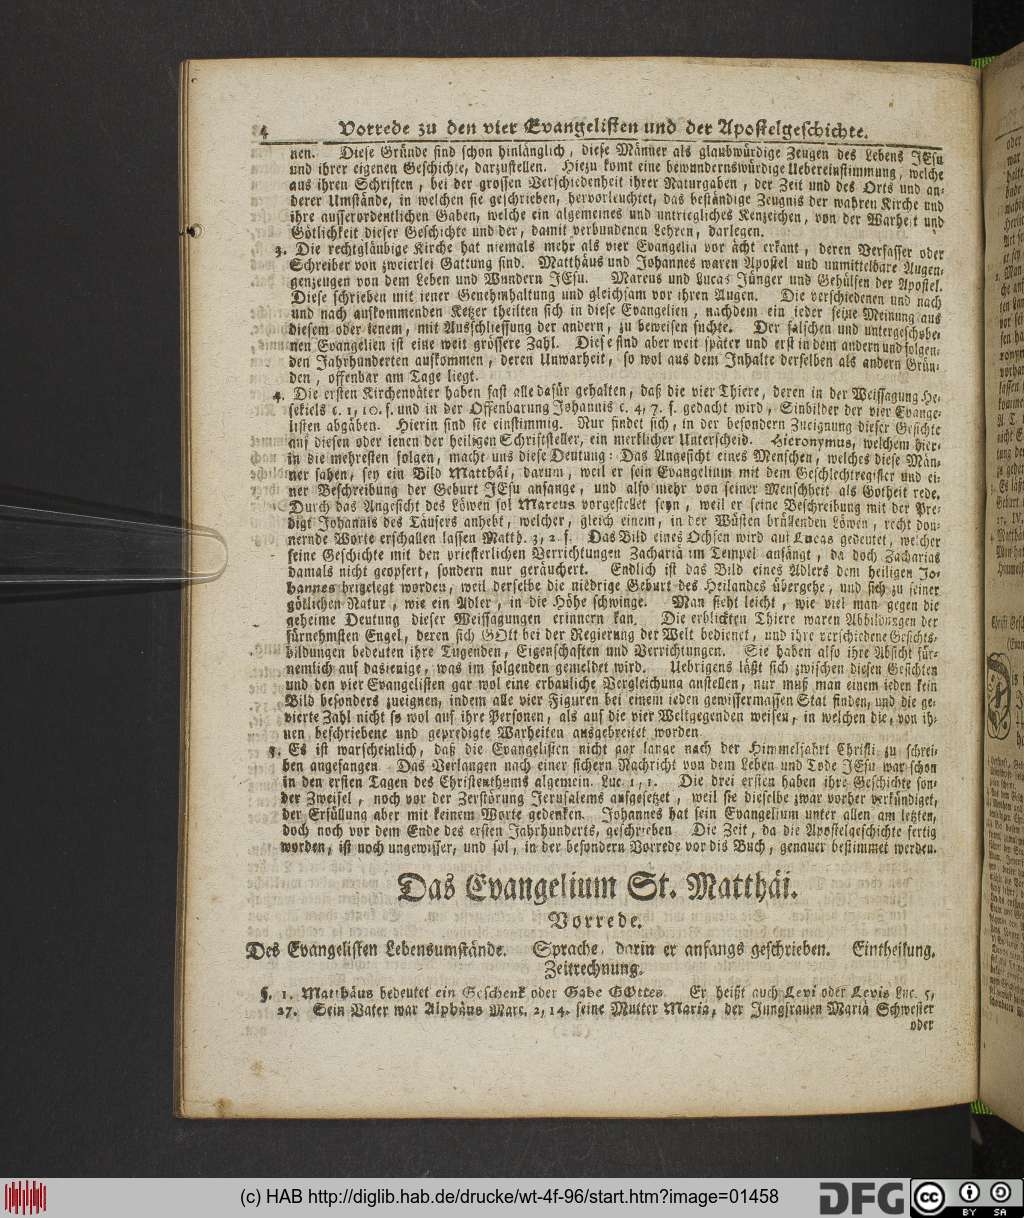 4 Vorrede zu den vier Evangelisten und der Apostelgeschichte.
nen. Diese Gründe sind schon hinlänglich, diese Männer als glaubwürdige Zeugen des Lebens JEsu
und ihrer eigenen Geschichte, darzustellen. Hiezu komt eine bewundernswürdige Uebereinstimmung, welche
aus ihren Schriften, bei der grossen Verschiedenheit ihrer Naturgaben, der Zeit und des Orts und an-
derer Umstände, in welchen sie geschrieben, hervorleuchtet, das beständige Zeugnis der wahren Kirche und
ihre ausserordentlichen Gaben, welche ein algemeines und untriegliches Kenzeichen, von der Warheit und
Götlichkeit dieser Geschichte und der, damit verbundenen Lehren, darlegen.
3. Die rechtgläubige Kirche hat niemals mehr als vier Evangelia vor ächt erkant, deren Verfasser oder
Schreiber von zweierlei Gattung sind. Matthäus und Johannes waren Apostel und unmittelbare Augen-
genzeugen von dem Leben und Wundern JEsu. Marcus und Lucas Jünger und Gehülfen der Apostel.
Diese schrieben mit iener Genehmhaltung und gleichsam vor ihren Augen. Die verschiedenen und nach
und nach aufkommenden Ketzer theilten sich in diese Evangelien, nachdem ein ieder seine Meinung aus
diesem oder ienem, mit Ausschliessung der andern, zu beweisen suchte. Der falschen und untergeschobe-
nen Evangelien ist eine weit grössere Zahl. Diese sind aber weit später und erst in dem andern und folgen-
den Jahrhunderten aufkommen, deren Unwarheit, so wol aus dem Inhalte derselben als andern Grün-
den, offenbar am Tage liegt.
4. Die ersten Kirchenväter haben fast alle dafür gehalten, daß die vier Thiere, deren in der Weissagung He-
sekiels c. 1, 10. f. und in der Offenbarung Johannis c. 4, 7. f. gedacht wird, Sinbilder der vier Evange-
listen abgäben. Hierin sind sie einstimmig. Nur findet sich, in der besondern Zueignung dieser Gesichte
auf diesen oder ienen der heiligen Schriftsteller, ein merklicher Unterscheid. Hieronymus, welchem hier-
in die mehresten folgen, macht uns diese Deutung: Das Angesicht eines Menschen, welches diese Män-
ner sahen, sey ein Bild Matthäi, darum, weil er sein Evangelium mit dem Geschlechtregister und ei-
ner Beschreibung der Geburt JEsu anfange, und also mehr von seiner Menschheit als Gotheit rede.
Durch das Angesicht des Löwen sol Marcus vorgestellet seyn, weil er seine Beschreibung mit der Pre-
digt Johannis des Täufers anhebt, welcher, gleich einem, in der Wüsten brüllenden Löwen, recht don-
nernde Worte erschallen lassen Matth. 3, 2. f. Das Bild eines Ochsen wird auf Lucas gedeutet, welcher
seine Geschichte mit den priesterlichen Verrichtungen Zachariä im Tempel anfängt, da doch Zacharias
damals nicht geopfert, sondern nur geräuchert. Endlich ist das Bild eines Adlers dem heiligen Jo-
hannes beigelegt worden, weil derselbe die niedrige Geburt des Heilandes übergehe, und sich zu seiner
götlichen Natur, wie ein Adler, in die Höhe schwinge. Man sieht leicht, wie viel man gegen die
geheime Deutung dieser Weissagungen erinnern kan. Die erblickten Thiere waren Abbildungen der
fürnehmsten Engel, deren sich GOtt bei der Regierung der Welt bedienet, und ihre verschiedene Gesichts-
bildungen bedeuten ihre Tugenden, Eigenschaften und Verrichtungen. Sie haben also ihre Absicht für-
nemlich auf dasienige, was im folgenden gemeldet wird. Uebrigens läßt sich zwischen diesen Gesichten
und den vier Evangelisten gar wol eine erbauliche Vergleichung anstellen, nur muß man einem ieden kein
Bild besonders zueignen, indem alle vier Figuren bei einem ieden gewissermassen Stat finden, und die ge-
vierte Zahl nicht so wol auf ihre Personen, als auf die vier Weltgegenden weisen, in welchen die, von ih-
nen beschriebene und gepredigte Warheiten ausgebreitet worden.
5. Es ist warscheinlich, daß die Evangelisten nicht gar lange nach der Himmelfahrt Christi zu schrei-
ben angefangen. Das Verlangen nach einer sichern Nachricht von dem Leben und Tode JEsu war schon
in den ersten Tagen des Christenthums algemein. Luc. 1, 1. Die drei ersten haben ihre Geschichte son-
der Zweifel, noch vor der Zerstörung Jerusalems aufgesetzet, weil sie dieselbe zwar vorher verkündiget,
der Erfüllung aber mit keinem Worte gedenken. Johannes hat sein Evangelium unter allen am letzten,
doch noch vor dem Ende des ersten Jahrhunderts, geschrieben. Die Zeit, da die Apostelgeschichte fertig
worden, ist noch ungewisser, und sol, in der besondern Vorrede vor dis Buch, genauer bestimmet werden.
Das Evangelium St. Matthäi.
Vorrede.
Des Evangelisten Lebensumstände. Sprache, darin er anfangs geschrieben. Eintheilung.
Zeitrechnung.
§. 1. Matthäus bedeutet ein Geschenk oder Gabe GOttes. Er heißt auch Levi oder Levis Luc. 5,
27. Sein Vater war Alphäus Marc. 2, 14. seine Mutter Maria, der Jungfrauen Mariä Schwester
oder
(c) HAB http://diglib.hab.de/drucke/wt-4f-96/start.htm?image=01458
DFG
cc BY SA